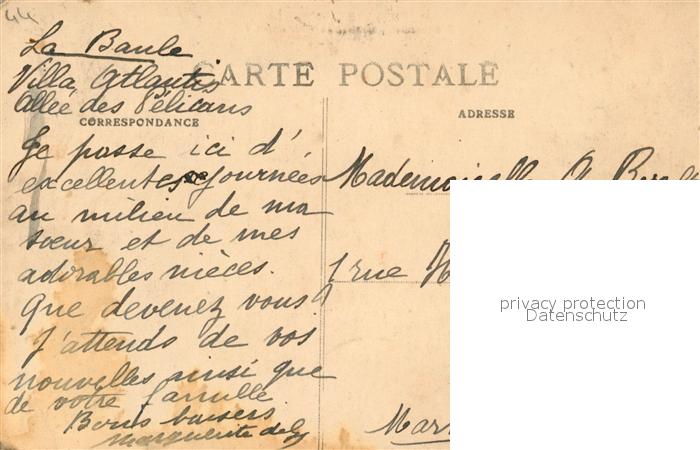 44
La Baule
Villa Atlantis
allée des Pélicans
CARTE POSTALE
CORRESPONDANCE
ADRESSE
Je passe ici d'
excellentes journées
au milieu de ma
sœur et de mes
adorables nièces.
Que devenez vous?
J'attends de vos
nouvelles ainsi que
de votre famille.
Bons baisers
Marguerite
Mademoiselle A
1 rue
Mar
privacy protection
Datenschutz